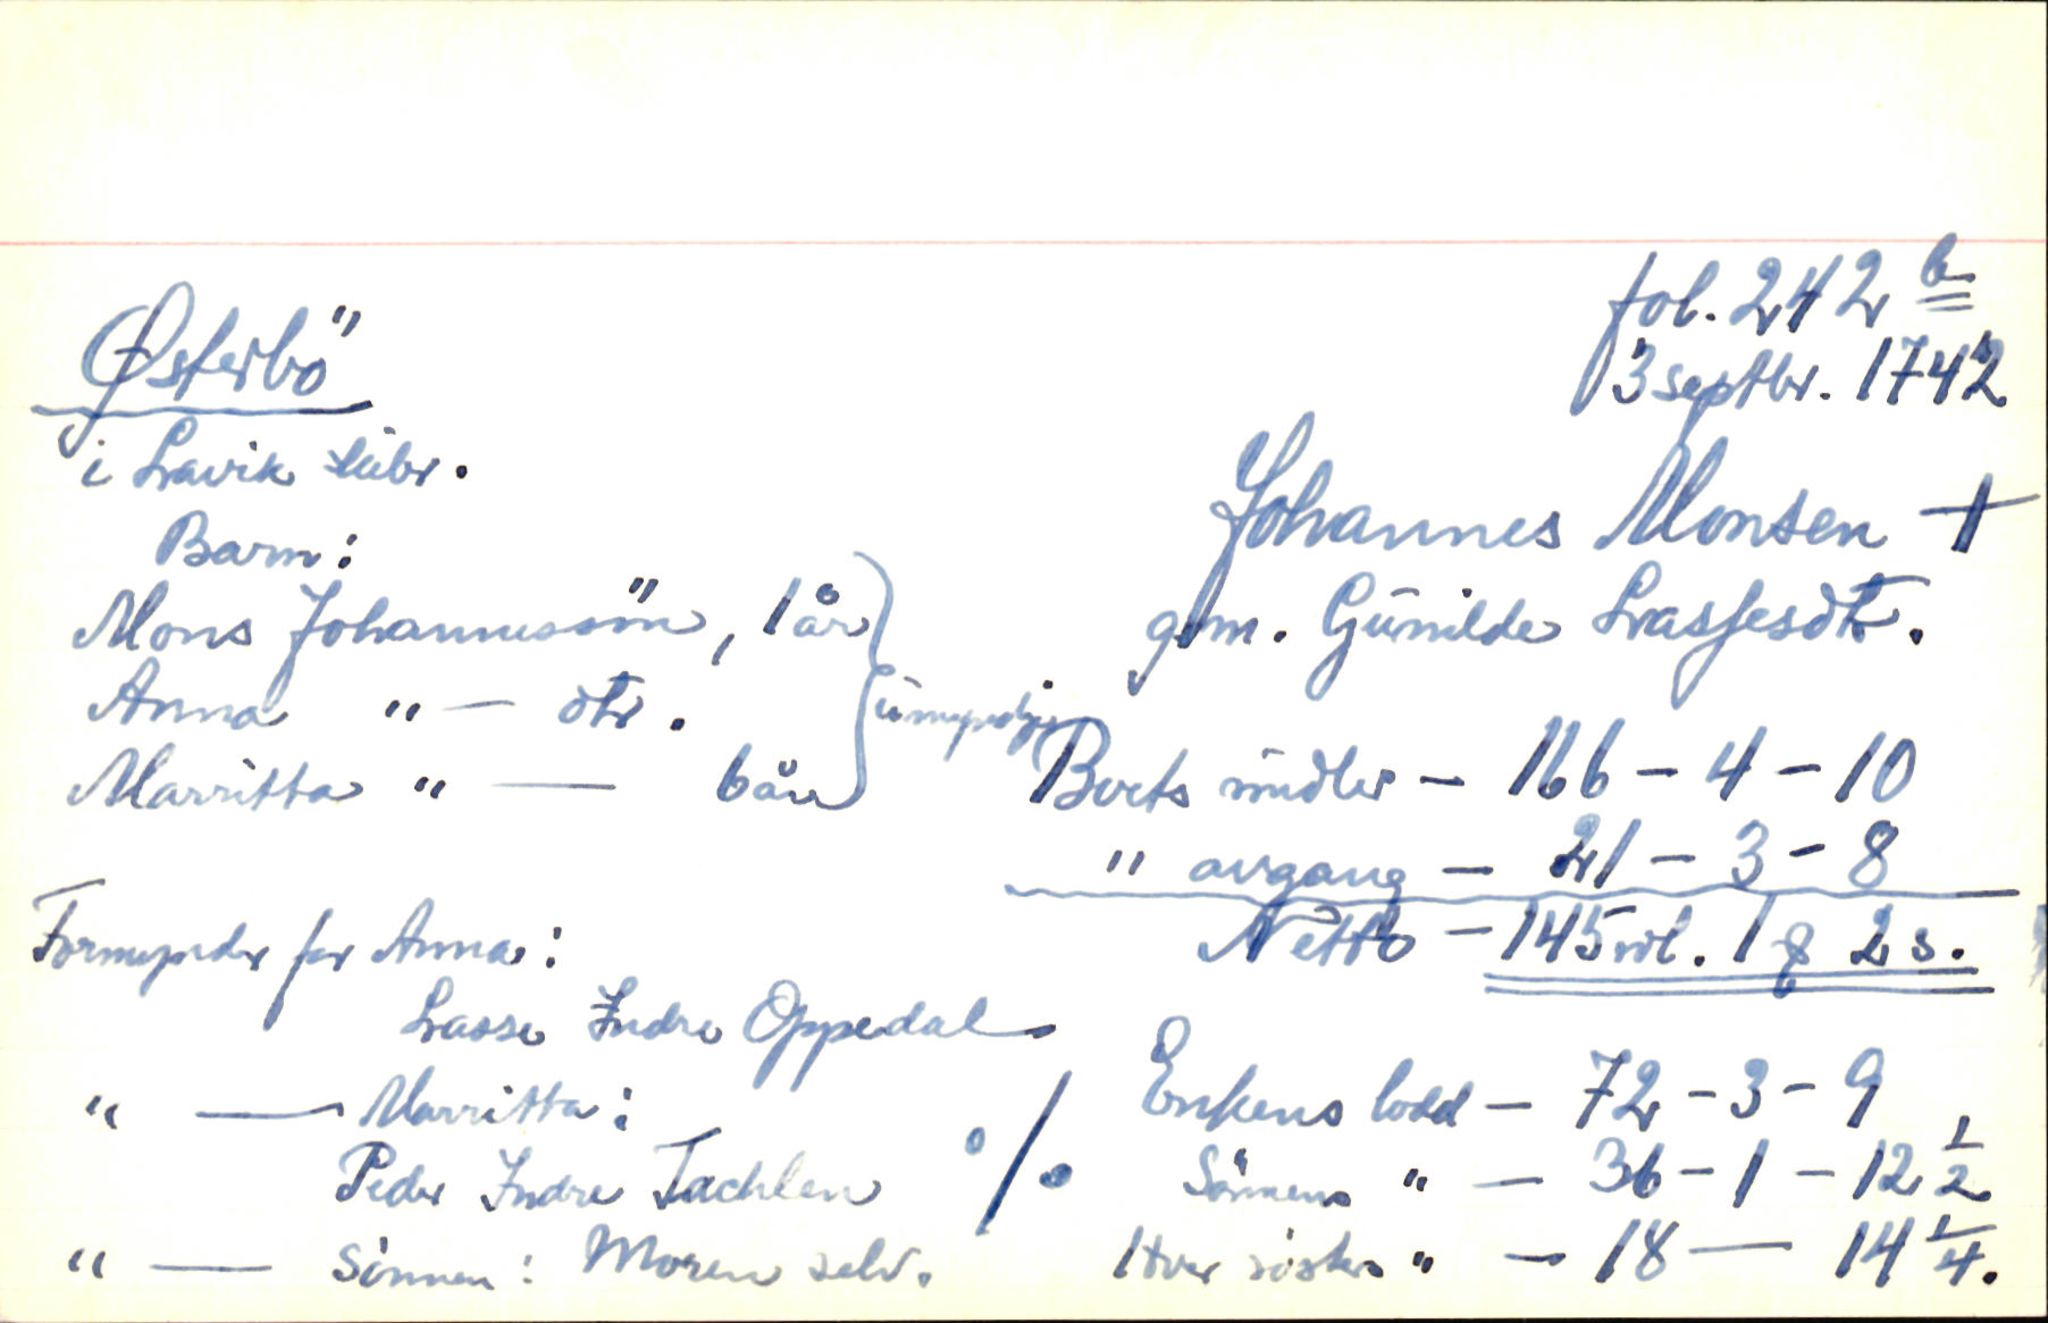 fol. 242 b
3 septbr. 1742
Østerbö
i Lavik skibr.
Johannes Monsen +
g.m. Gunilde Lassesdtr.
Barn:
Mons Johannessön, 1 år
Anna " — dtr.
Marritta " — 6 år
umyndige
Boets midler - 166 - 4 - 10
" avgang - 21 - 3 - 8
Netto - 145 rdl. 1 ƒ 2 s.
Formynder for Anna:
Lasse Indre Oppedal
" — Marritta:
Peder Indre Tachlen
" — Sönnen: Moren selv.
%
Enkens lodd - 72 - 3 - 9
Sönnens " - 36 - 1 - 12 1/2
Hver systers " - 18 — 14 1/4.